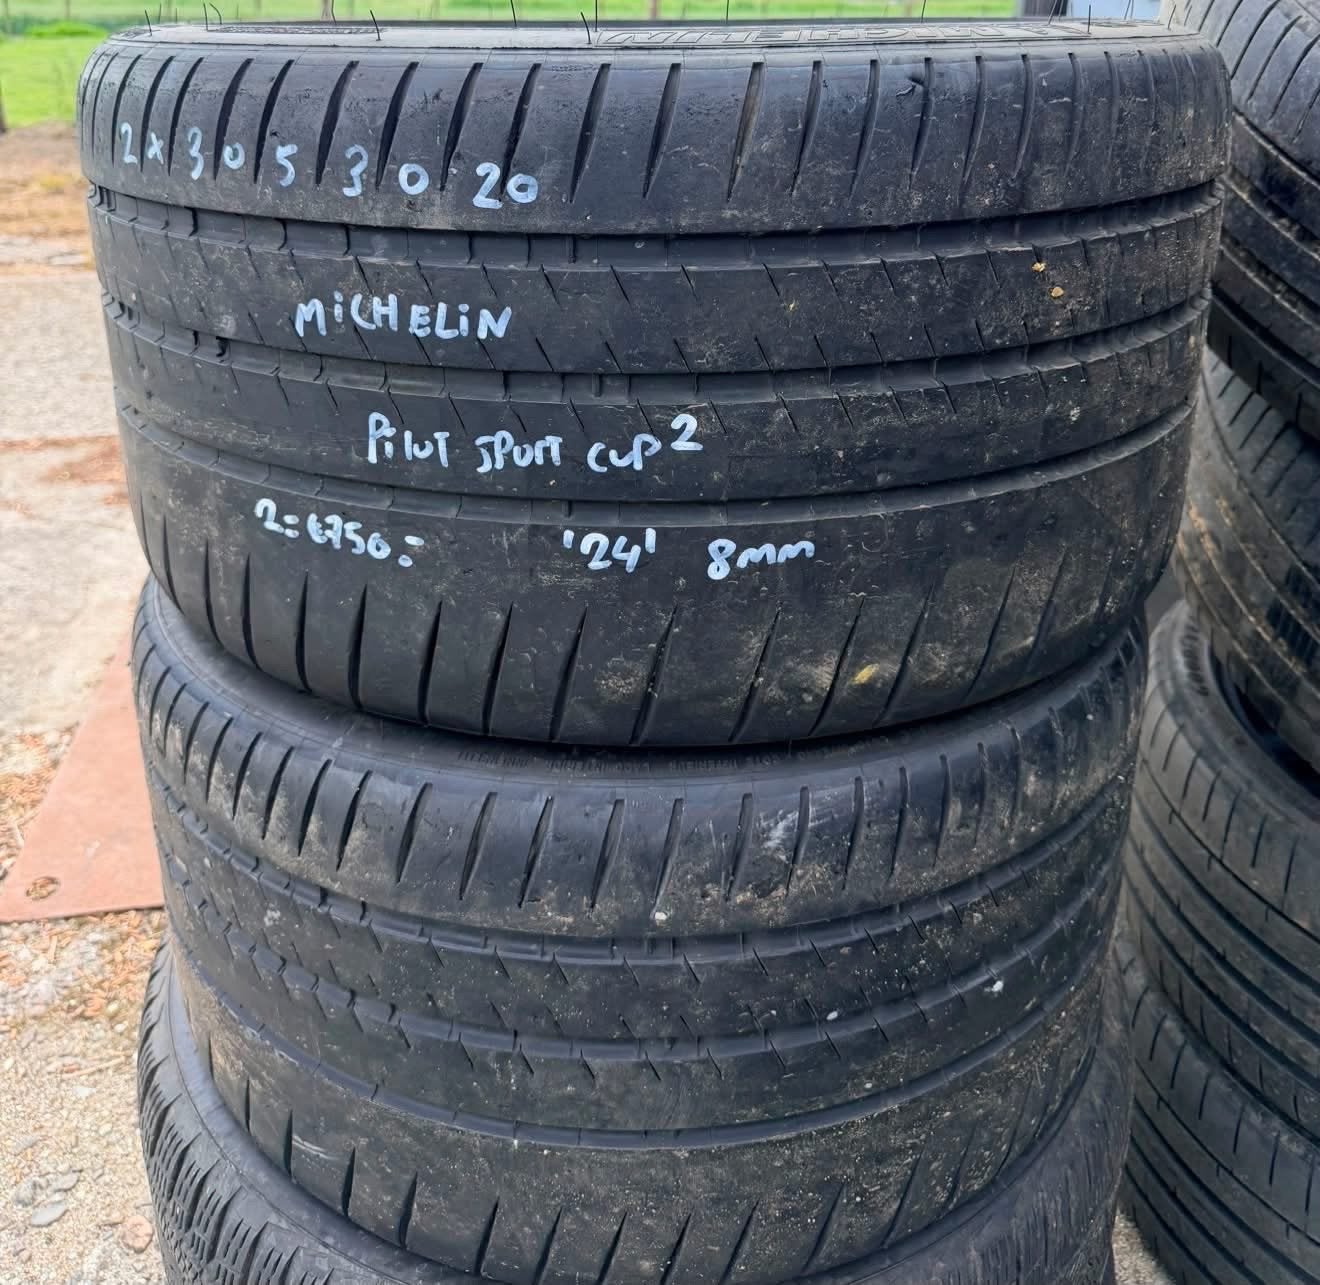 MICHELIN
2x 305 30 20
MiCHELiN
PiLOT SPORT CUP 2
2= €750,= '24' 8mm